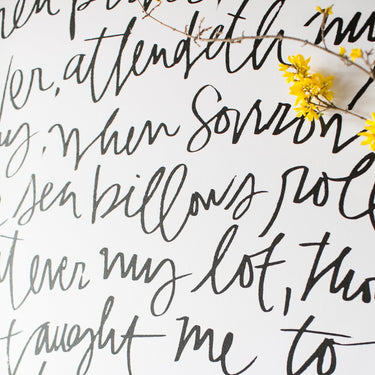 attendeth my
when sorrow
sea billows roll
ever my lot, tho
taught me to